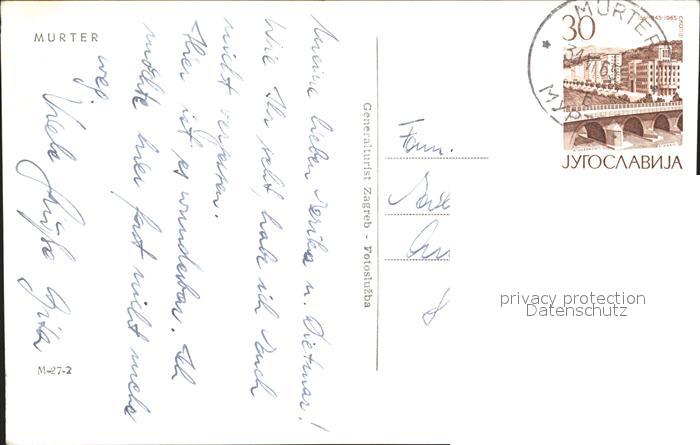 MURTER
Meine lieben Serika u. Dietmar!
Wie Ihr seht, habe ich Euch
nicht vergessen.
Hier ist es wunderbar. Ich
möchte hier fast nicht mehr
weg.
Viele Grüße Gitta
M-27-2
Generalturist Zagreb - Fotoslužba
Fam.
30
1945-1965
MURTER
МУР
ЈУГОСЛАВИЈА
privacy protection
Datenschutz